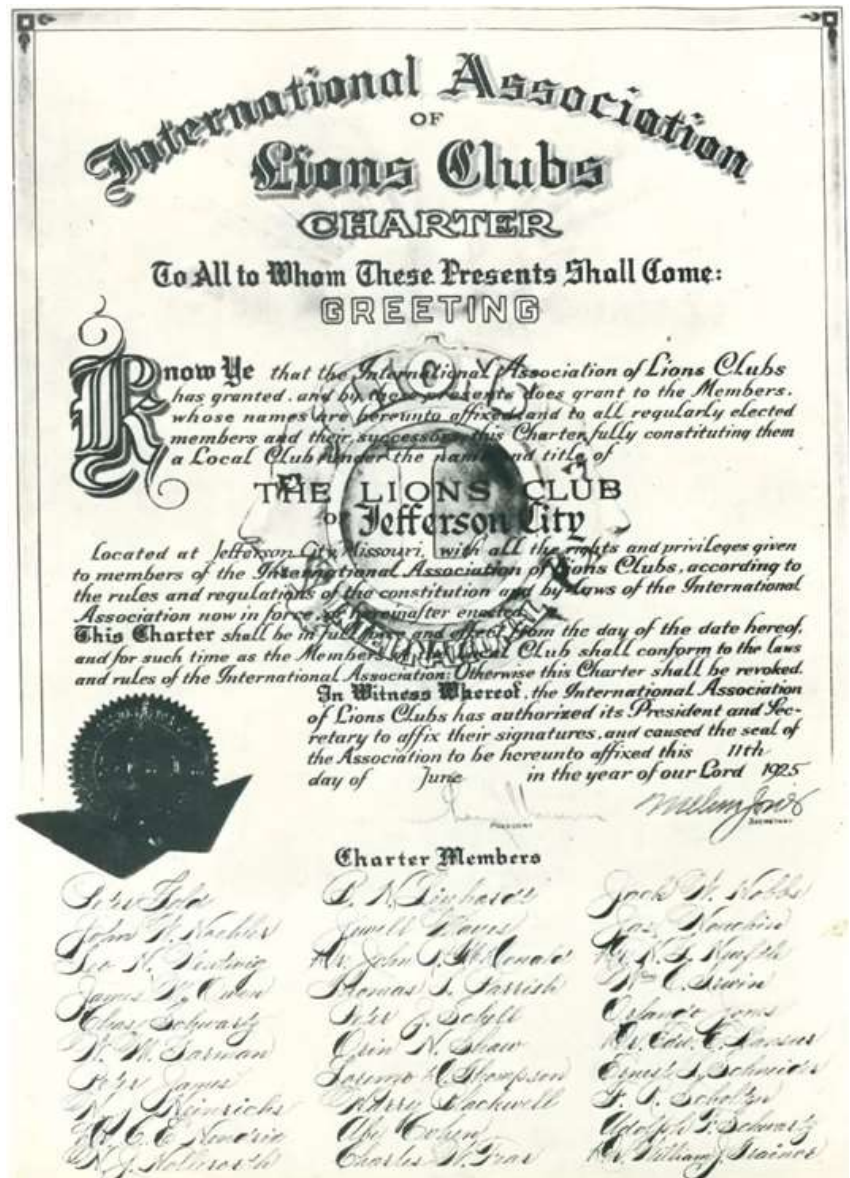 International Association
OF
Lions Clubs
CHARTER
To All to Whom These Presents Shall Come:
GREETING
Know Ye that the International Association of Lions Clubs
has granted, and by these presents does grant to the Members,
whose names are hereunto affixed and to all regularly elected
members and their successors, this Charter, fully constituting them
a Local Club under the name and title of
THE LIONS CLUB
OF Jefferson City
Located at Jefferson City, Missouri, with all the rights and privileges given
to members of the International Association of Lions Clubs, according to
the rules and regulations of the constitution and by-laws of the International
Association now in force or hereinafter enacted.
This Charter shall be in full force and effect from the day of the date hereof,
and for such time as the Members of the Local Club shall conform to the laws
and rules of the International Association: Otherwise this Charter shall be revoked.
In Witness Whereof, the International Association
of Lions Clubs has authorized its President and Sec-
retary to affix their signatures, and caused the seal of
the Association to be hereunto affixed this 11th
day of June in the year of our Lord 1925
Melvin Jones
PRESIDENT SECRETARY
Charter Members
Jack W. Hobbs
Jewell Jas.
Dr. John McDonald Dr.
James Owen Thomas J. Parrish Wm. C. Irwin
Chas. Schwartz Orlando Jones
Orin N. Shaw Dr. Edw. E.
Peter James Lorenzo Thompson Ernest Schneider
Heinrichs Harry Blackwell
Abe Cohen Adolph F. Schwartz
Charles W. Dr. William J. Trainor